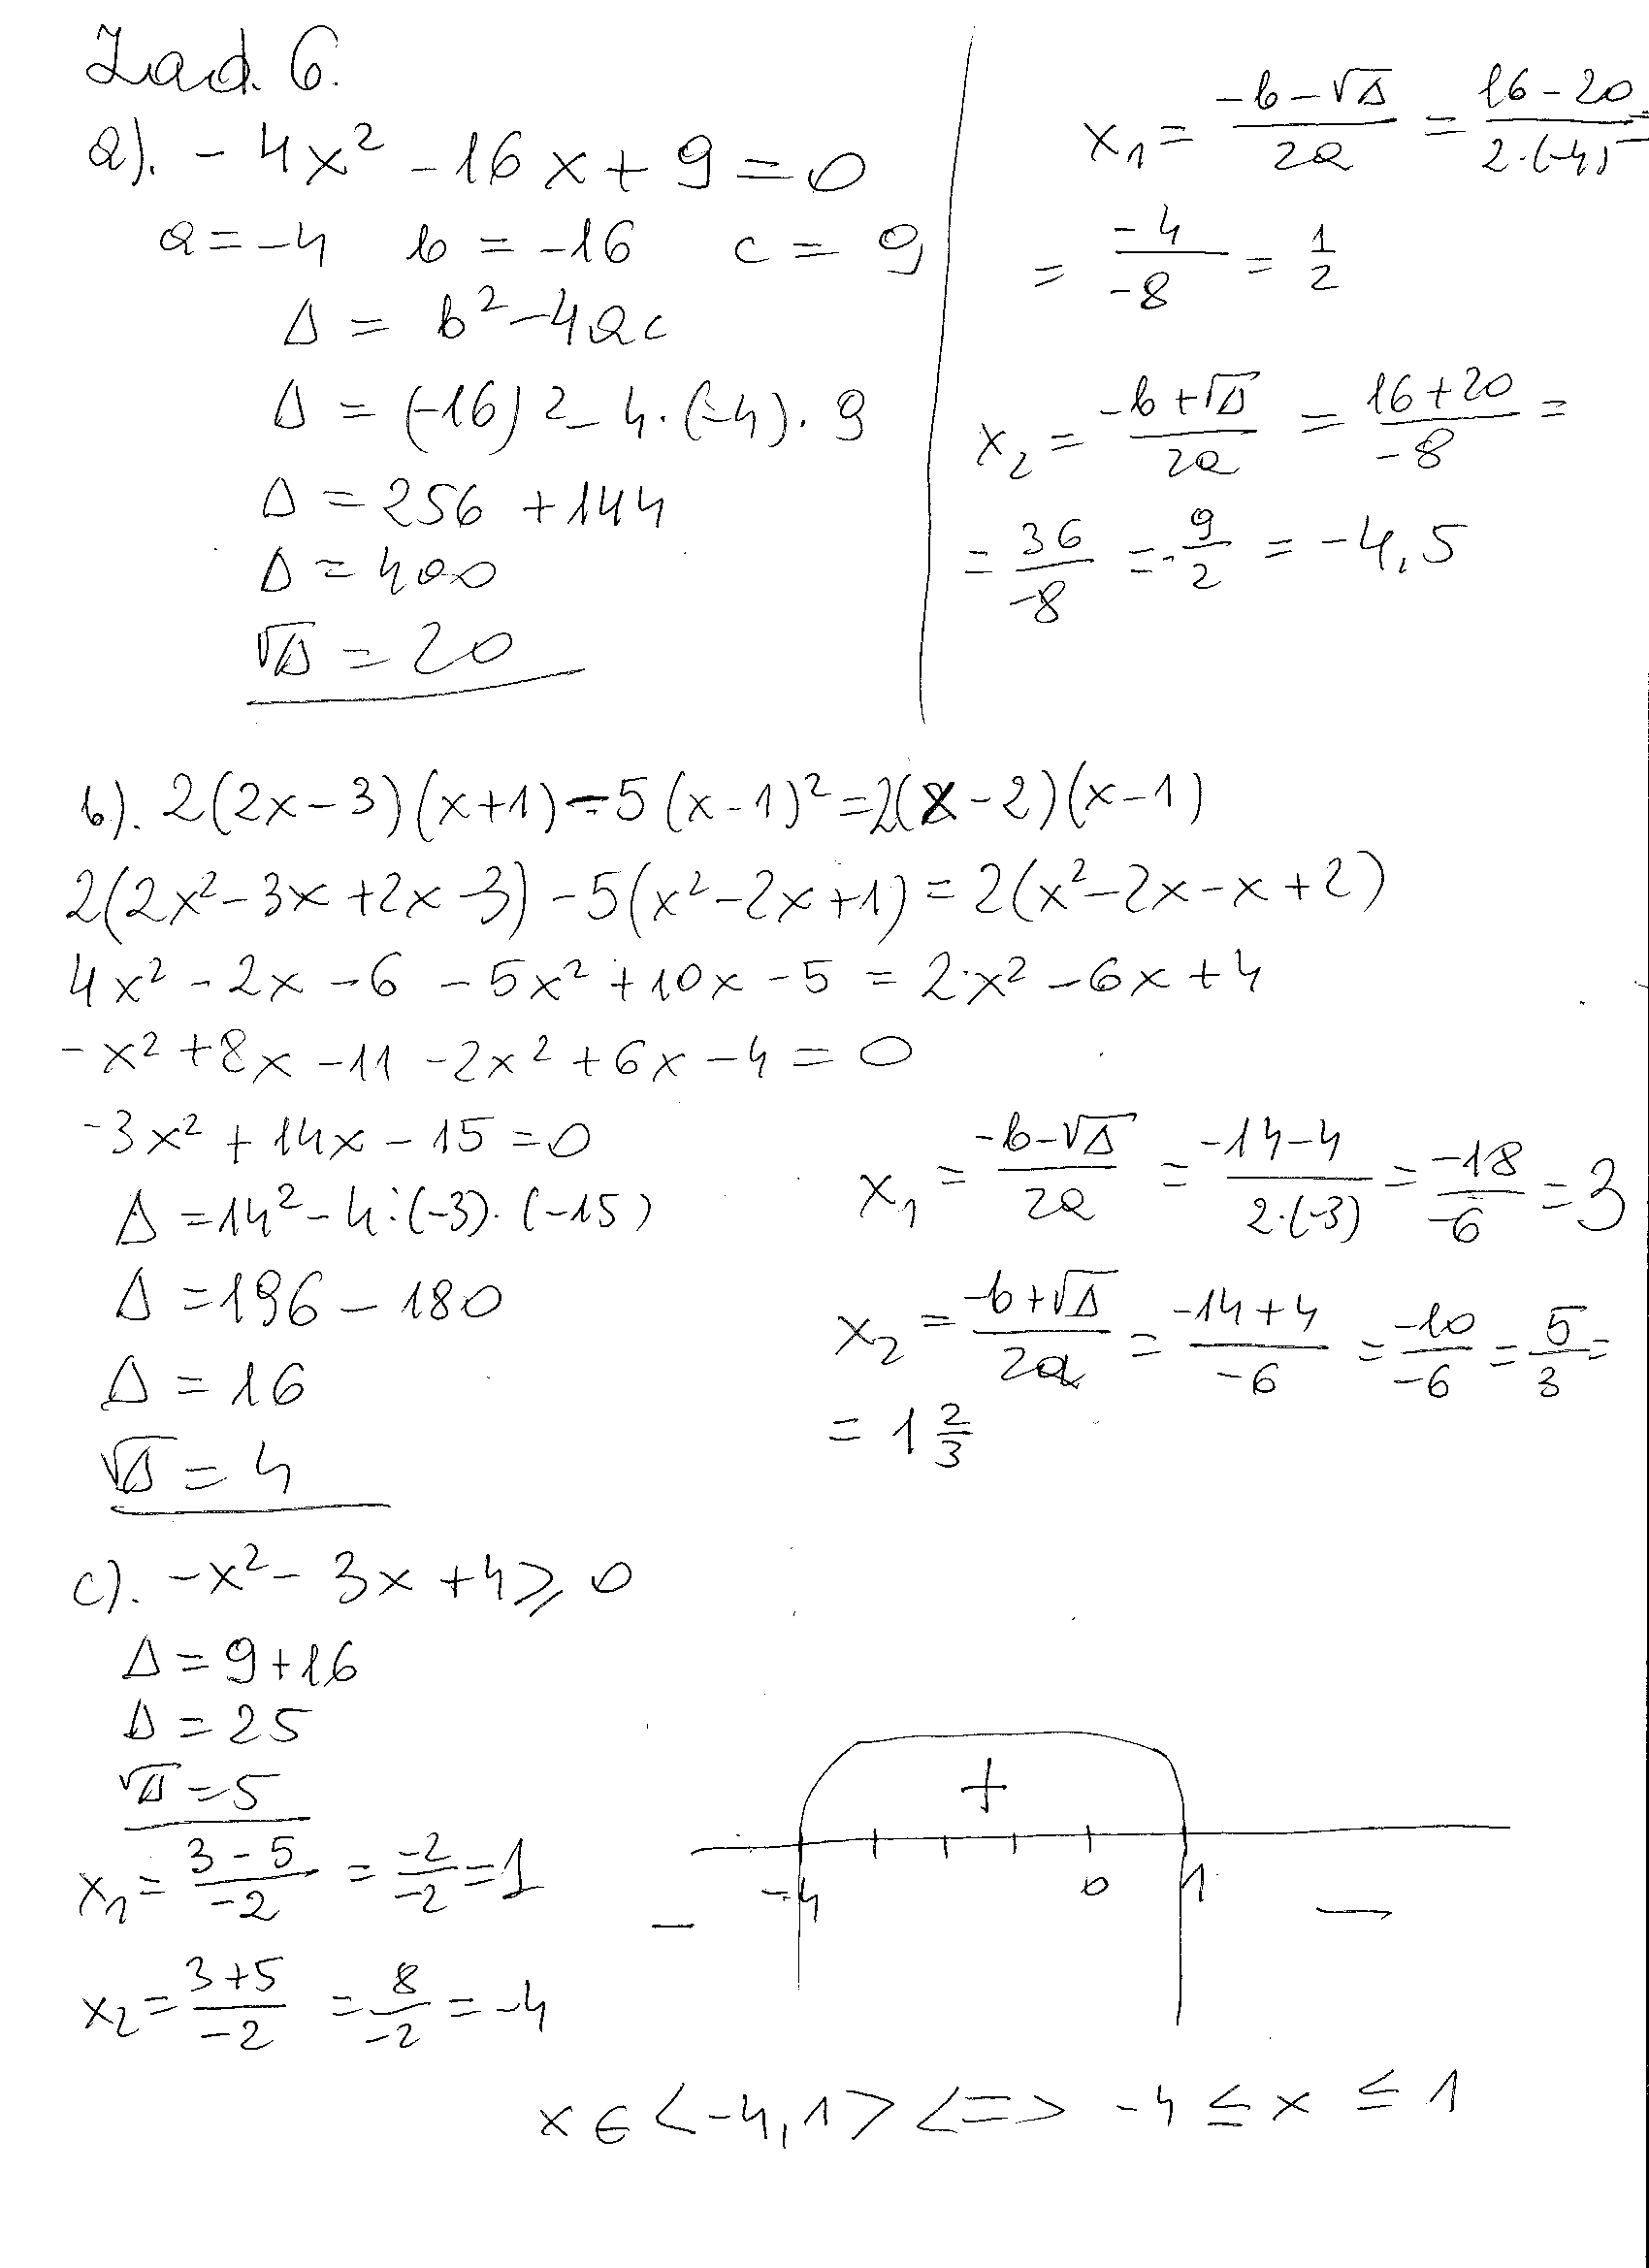 Zad. 6.
a). -4x² - 16x + 9 = 0
a = -4 b = -16 c = 9
Δ = b² - 4ac
Δ = (-16)2 - 4·(-4)·9
Δ = 256 + 144
Δ = 400
√Δ = 20
x₁ = (-b-√Δ)/2a = (16-20)/(2·(-4)) =
= -4/-8 = 1/2
x₂ = (-b+√Δ)/2a = (16+20)/-8 =
= 36/-8 = -9/2 = -4,5
b). 2(2x-3)(x+1) - 5(x-1)² = 2(x-2)(x-1)
2(2x²-3x+2x-3) - 5(x²-2x+1) = 2(x²-2x-x+2)
4x² - 2x - 6 - 5x² + 10x - 5 = 2x² - 6x + 4
-x² + 8x - 11 - 2x² + 6x - 4 = 0
-3x² + 14x - 15 = 0
Δ = 14² - 4·(-3)·(-15)
Δ = 196 - 180
Δ = 16
√Δ = 4
x₁ = (-b-√Δ)/2a = (-14-4)/(2·(-3)) = -18/-6 = 3
x₂ = (-b+√Δ)/2a = (-14+4)/-6 = -10/-6 = 5/3 =
= 1 2/3
c). -x² - 3x + 4 ⩾ 0
Δ = 9 + 16
Δ = 25
√Δ = 5
x₁ = (3-5)/-2 = -2/-2 = 1
x₂ = (3+5)/-2 = 8/-2 = -4
+
-4 0 1
- -
x ∈ <-4,1> <=> -4 ≤ x ≤ 1